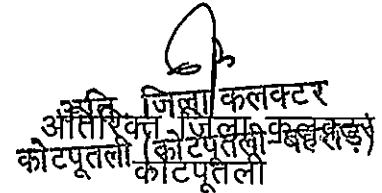 अति जिला कलक्टर
अतिरिक्त जिला कलक्टर
कोटपूतली (कोटपूतली-बहरोड़)
कोटपूतली